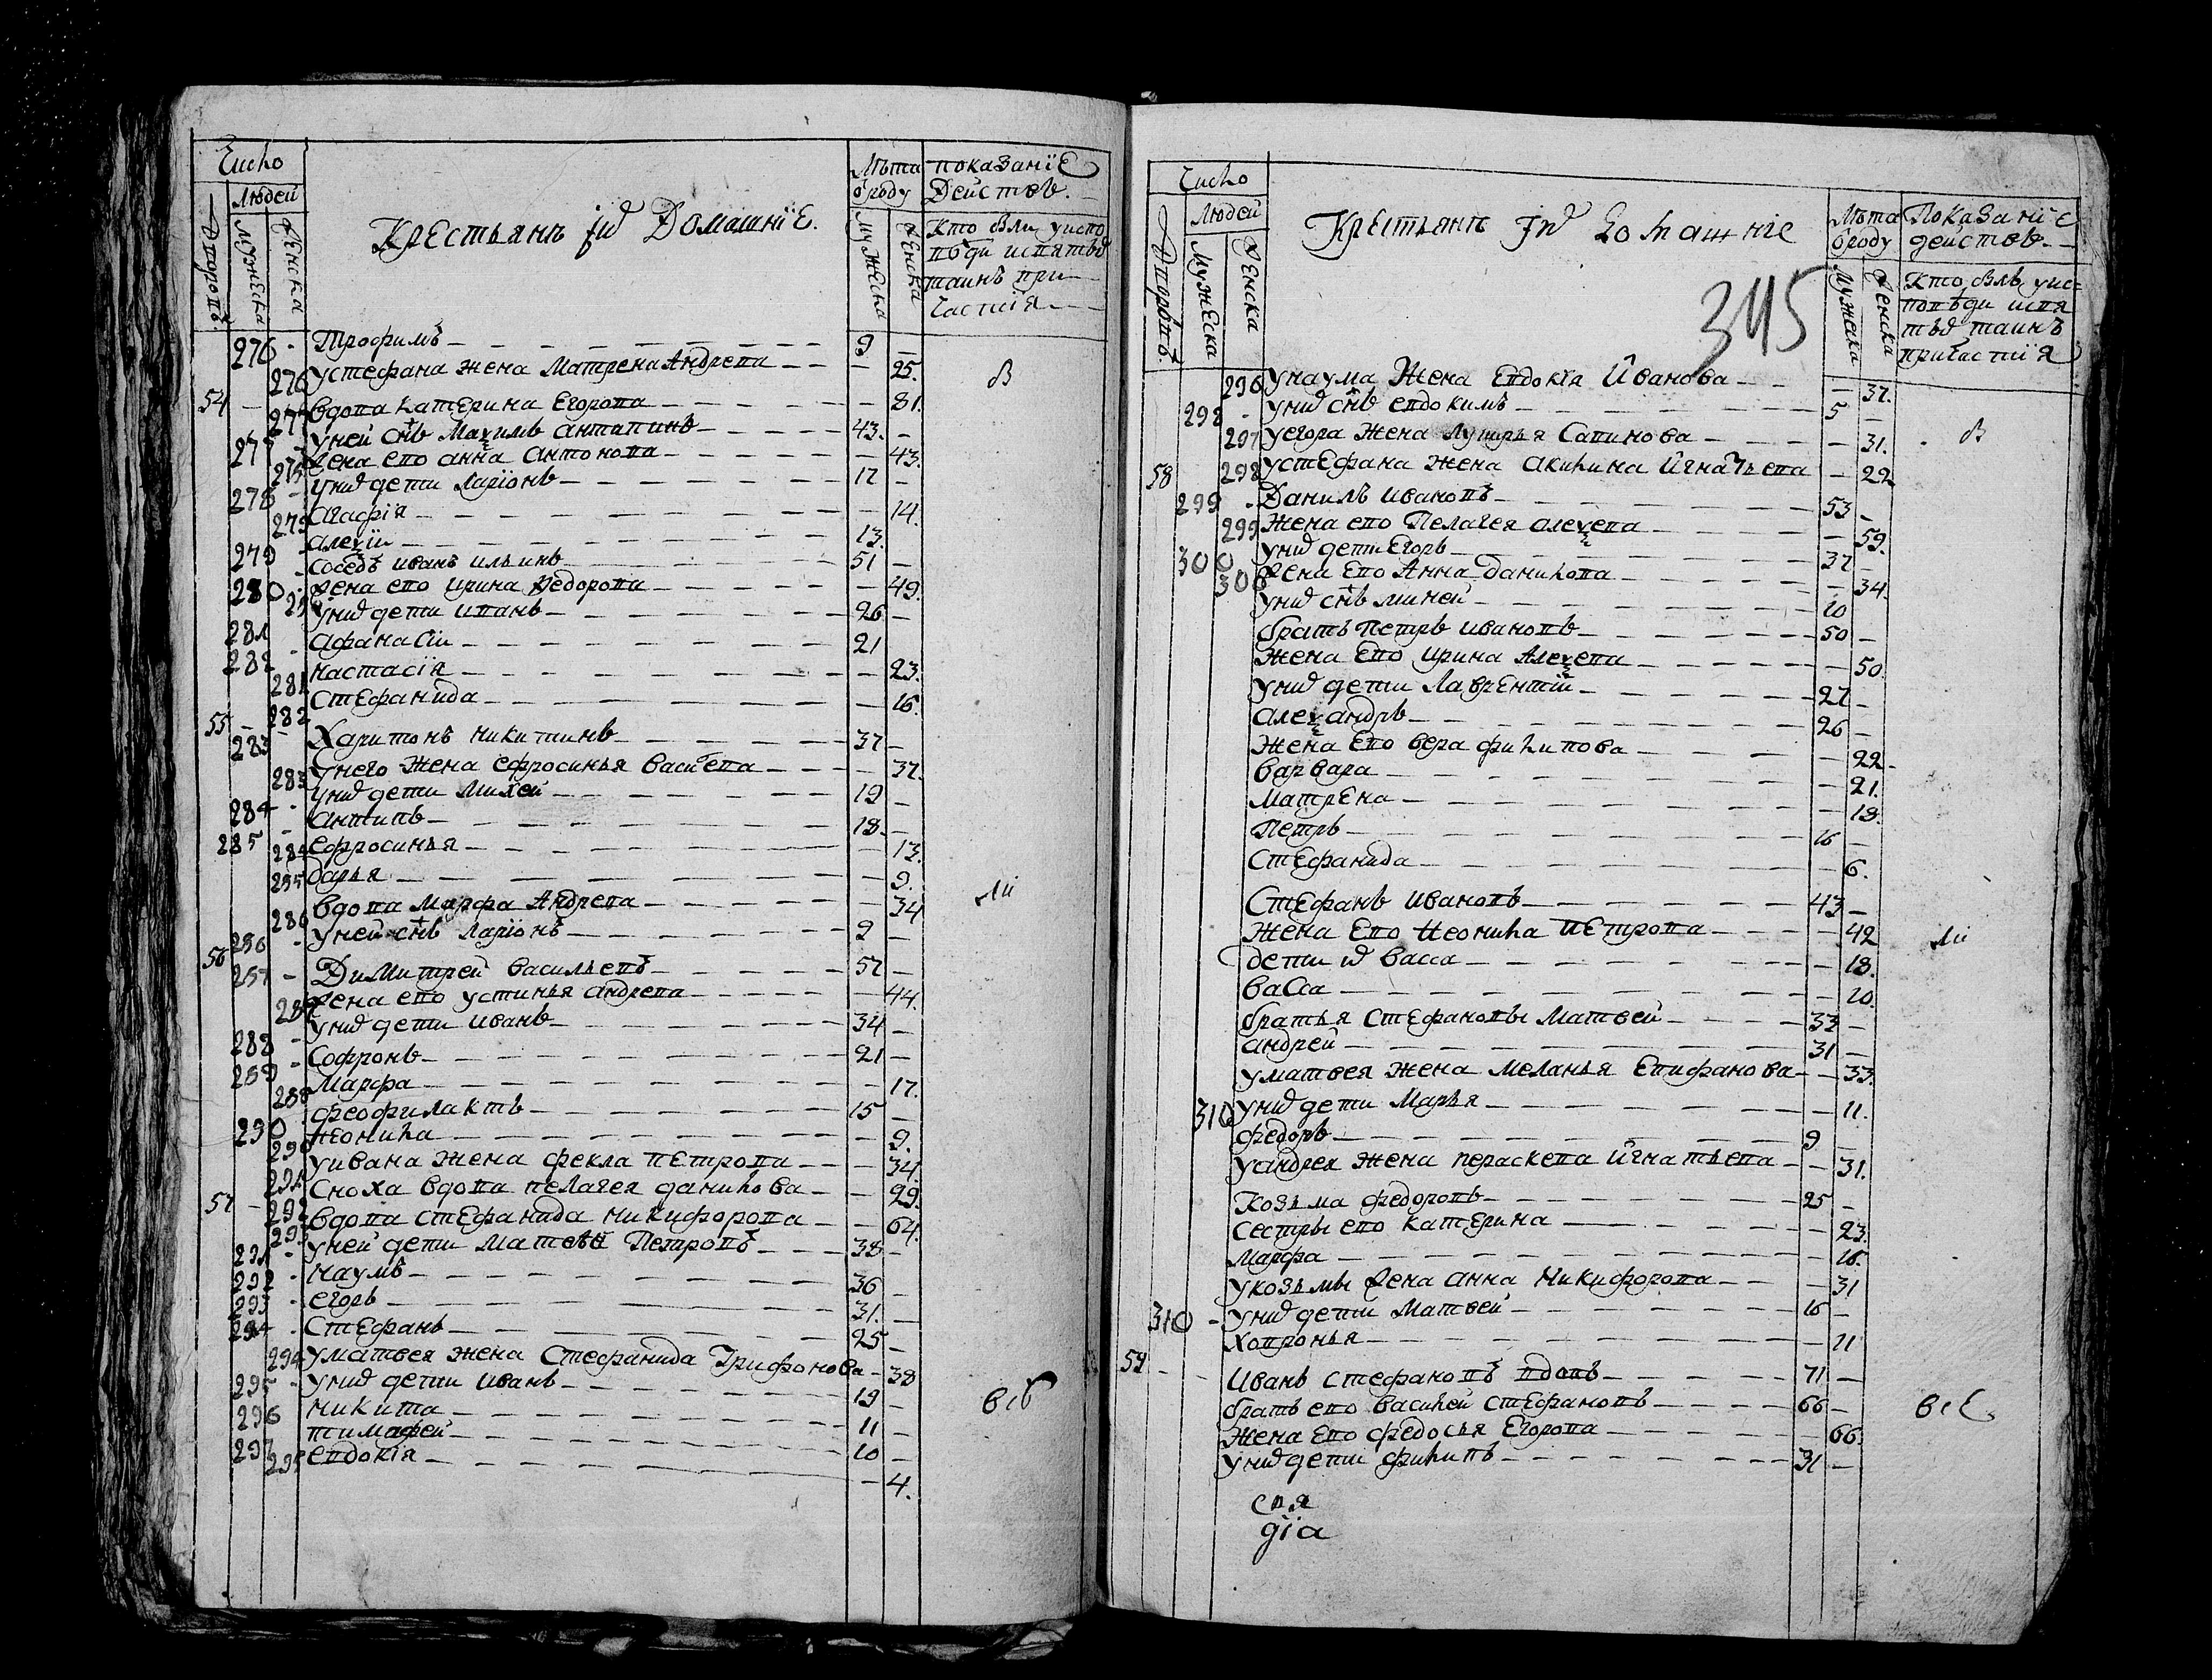 Число
Людей
Дворовъ
Мужеска
Женска
Крестьянъ ихъ Домашнїе.
Лѣта
ѿроду
Мужеска
Женска
показанїе
Действъ.
Кто былъ уиспо
вѣди исвятыхъ
таинъ при
частїя
276 Трофимъ 9
276 устефана жена Матрена Андрева 25. В
54 277 вдова катерина Егорова 81.
уней снъ Маѯимъ антапинъ 43.
жена ево анна антонова 43.
278 унихъ дети Ларїонъ 17
279 Агафїя 14.
алеѯїи 13.
279 соседъ иванъ ильинъ 51
280 жена ево ирина федорова 49.
унихъ дети иванъ 26
281 афанасїи 21
282 281 настасїя 23.
282 стефанида 16.
55 283 Харитонъ никитинъ 37
283 унего жена ефросинья васиева 37.
284 унихъ дети Михей 19
285 антипъ 18
284 ефросинья 13.
285 дарья 9.
286 вдова Марфа Андрева 34 ли
286 уней снъ Ларїонъ 9
56 287 Димитрей васильевъ 57
287 жена ево устинья андрева 44.
288 унихъ дети иванъ 34
289 Софронъ 21
288 Марфа 17.
290 феофилактъ 15
290 неонила 9.
291 уивана жена фекла петрова 34.
292 Сноха вдова пелагея данилова 29.
57 293 вдова стефанида никифорова 64.
291 уней дети Матвѣй Петровъ 38
292 наумъ 36
293 егоръ 31.
294 Стефанъ 25
294 уматвея жена Стефанида Трифонова 38
295 унихъ дети иванъ 19
296 никита 11
297 тимафей 10
295 евдокїя 4.
Число
Людей
Дворовъ
Мужеска
Женска
Крестьянъ ихъ Домашнїе
345
Лѣта
ѿроду
Мужеска
Женска
Показанїе
действъ
Кто былъ уис=
повѣди исвя
тыхъ таинъ
причастїя
296 унаума Жена Евдокїя Иванова 37.
298 унихъ снъ евдокимъ 5
297 уегора жена Лукерья Савинова 31. В
58 298 устефана жена акилина Игнатьева 29
299 Данилъ ивановъ 53
299 Жена ево Пелагея алеѯева 59.
300 унихъ дети Егоръ 37
300 жена Ево Анна данилова 34.
унихъ снъ миней 10
братъ петръ ивановъ 50
Жена Ево ирина Алеѯева 50
унихъ дети Лаврентїи 27
алеѯандръ 26
Жена Ево вера филипова 22
варвара 21.
Матрена 18.
Петръ 16
Стефанида 6.
Стефанъ ивановъ 43
Жена Ево Неонила Петрова 42 ли
дети ихъ васса 18.
васса 10.
братья стефановы Матвей 33
андрей 31
уматвея жена меланья Епифанова 33.
310 унихъ дети Марья 11.
федоръ 9
уандрея жена параскева игнатьева 31.
Козьма федоровъ 25
сестры ево катерина 23.
Марфа 16.
укозьмы жена анна никифорова 31
310 унихъ дети Матвей 16
Ховронья 11
59 Иванъ стефановъ вдовъ 71
братъ ево василей стефановъ 66
Жена Ево федосья Егорова 66.
унихъ дети филипъ 31
свя
дїа